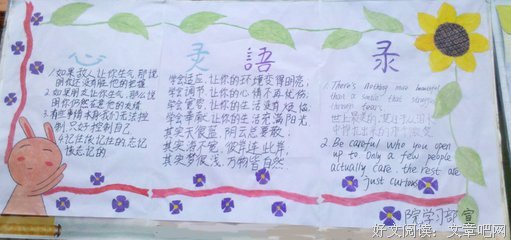 心灵語录
1.如果敌人让你生气,那说
明你还没有胜他的把握
2.如果朋友让你生气,那么说
明你仍然在意他的友情
3.有些事情本身我们无法控
制,只好控制自己
4.记住该记住的,忘记
该忘记的
学会适应,让你的环境变得明亮;
学会调节,让你的心情不再忧伤;
学会宽容,让你的生活没有烦恼;
学会奉献,让你的生活充满阳光
其实天很蓝,阴云总要散;
其实海不宽,彼岸连此岸;
其实梦很浅,万物皆自然
1. There's nothing more beautiful
than a smile that struggles
through tears.
世上最美的,莫过于从泪水
中挣脱出来的那个微笑
2. Be careful who you open
up to. Only a few people
actually care. the rest are
just curious
院学习部 宣
好文阅读: 文章吧网